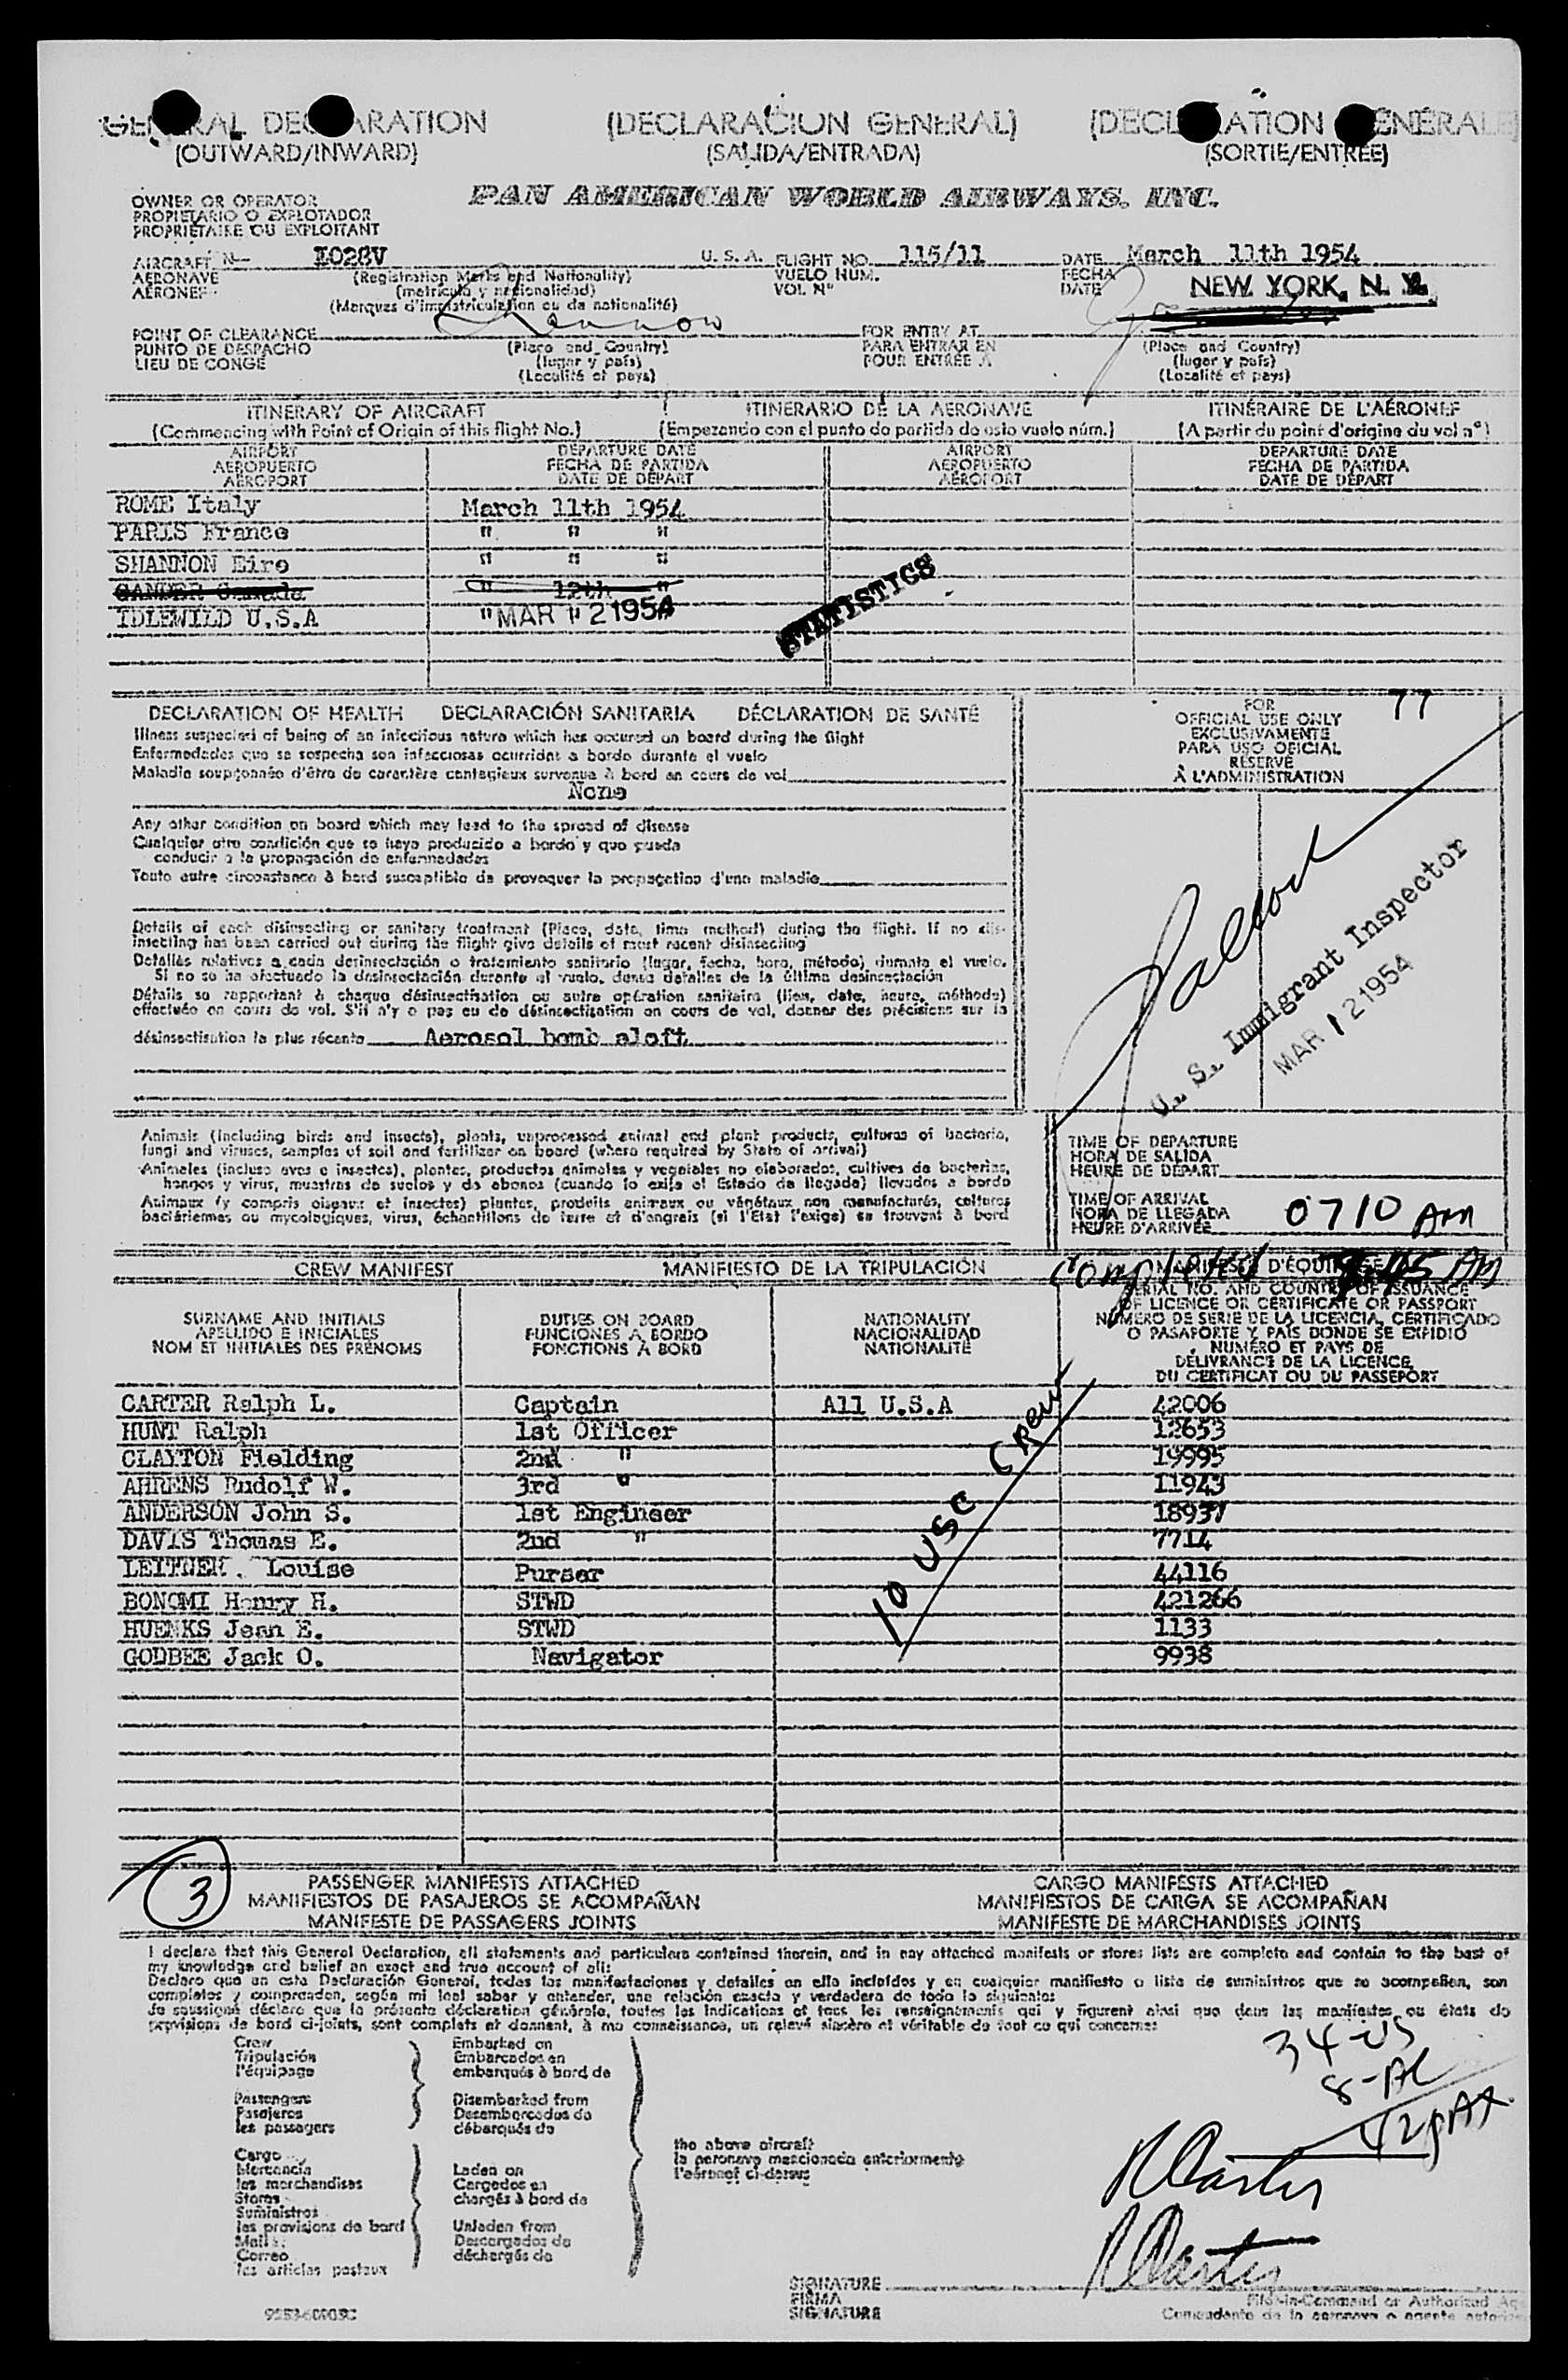 GENERAL DECLARATION (DECLARACION GENERAL) (DECLARATION GÉNÉRALE)
(OUTWARD/INWARD) (SALIDA/ENTRADA) (SORTIE/ENTRÉE)
PAN AMERICAN WORLD AIRWAYS, INC.
OWNER OR OPERATOR
PROPIETARIO O EXPLOTADOR
PROPRIÉTAIRE OU EXPLOITANT
AIRCRAFT N— 1028V U. S. A. FLIGHT NO. 115/11 DATE March 11th 1954
AERONAVE (Registration Marks and Nationality) VUELO NUM. FECHA
AÉRONEF (matrícula y nacionalidad) VOL N° DATE NEW YORK, N. Y.
(Marques d'immatriculation ou de nationalité)
POINT OF CLEARANCE Shannon FOR ENTRY AT
PUNTO DE DESPACHO (Place and Country) PARA ENTRAR EN (Place and Country)
LIEU DE CONGE (lugar y país) POUR ENTRÉE A (lugar y país)
(Localité et pays) (Localité et pays)
ITINERARY OF AIRCRAFT ITINERARIO DE LA AERONAVE ITINÉRAIRE DE L'AÉRONEF
(Commencing with Point of Origin of this flight No.) (Empezando con el punto de partida de este vuelo núm.) (A partir du point d'origine du vol n°)
AIRPORT DEPARTURE DATE AIRPORT DEPARTURE DATE
AEROPUERTO FECHA DE PARTIDA AEROPUERTO FECHA DE PARTIDA
AÉROPORT DATE DE DÉPART AÉROPORT DATE DE DÉPART
ROME Italy March 11th 1954
PARIS France " " "
SHANNON Eire " " "
GANDER Canada " 12th "
IDLEWILD U.S.A " MAR 12 1954
STATISTICS
DECLARATION OF HEALTH DECLARACIÓN SANITARIA DÉCLARATION DE SANTÉ
Illness suspected of being of an infectious nature which has occured on board during the flight
Enfermedades que se sospecha son infecciosas ocurridas a bordo durante el vuelo
Maladie soupçonnée d'être de caractère contagieux survenue à bord en cours de vol
None
Any other condition on board which may lead to the spread of disease
Cualquier otra condición que se haya producido a bordo y que pueda
conducir a la propagación de enfermedades
Toute autre circonstance à bord susceptible de provoquer la propagation d'une maladie
Details of each disinsecting or sanitary treatment (Place, date, time method) during the flight. If no dis-
insecting has been carried out during the flight give details of most recent disinsecting
Detalles relativos a cada desinsectación o tratamiento sanitario (lugar, fecha, hora, método) durante el vuelo.
Si no se ha efectuado la desinsectación durante el vuelo, dense detalles de la última desinsectación
Détails se rapportant à chaque désinsectisation ou autre opération sanitaire (lieu, date, heure, méthode)
effectuée en cours de vol. S'il n'y a pas eu de désinsectisation en cours de vol, donner des précisions sur la
désinsectisation la plus récente Aerosol bomb aloft
FOR 77
OFFICIAL USE ONLY
EXCLUSIVAMENTE
PARA USO OFICIAL
RÉSERVÉ
À L'ADMINISTRATION
U. S. Immigrant Inspector
MAR 12 1954
Animals (including birds and insects), plants, unprocessed animal and plant products, cultures of bacteria,
fungi and viruses, samples of soil and fertilizer on board (where required by State of arrival)
Animales (incluso aves e insectos), plantas, productos animales y vegetales no elaborados, cultivos de bacterias,
hongos y virus, muestras de suelos y de abonos (cuando lo exija el Estado de llegada) llevados a bordo
Animaux (y compris oiseaux et insectes) plantes, produits animaux ou végétaux non manufacturés, cultures
bactériennes ou mycologiques, virus, échantillons de terre et d'engrais (si l'Etat l'exige) se trouvant à bord
TIME OF DEPARTURE
HORA DE SALIDA
HEURE DE DÉPART
TIME OF ARRIVAL
HORA DE LLEGADA 0710 AM
HEURE D'ARRIVÉE
Completed 8:45 AM
CREW MANIFEST MANIFIESTO DE LA TRIPULACIÓN MANIFESTE D'ÉQUIPAGE
SURNAME AND INITIALS DUTIES ON BOARD NATIONALITY SERIAL NO. AND COUNTRY OF ISSUANCE
APELLIDO E INICIALES FUNCIONES A BORDO NACIONALIDAD OF LICENCE OR CERTIFICATE OR PASSPORT
NOM ET INITIALES DES PRÉNOMS FONCTIONS A BORD NATIONALITÉ NÚMERO DE SERIE DE LA LICENCIA, CERTIFICADO
O PASAPORTE Y PAÍS DONDE SE EXPIDIÓ
NUMÉRO ET PAYS DE
DÉLIVRANCE DE LA LICENCE,
DU CERTIFICAT OU DU PASSEPORT
CARTER Ralph L. Captain All U.S.A 42006
HUNT Ralph 1st Officer 12653
CLAYTON Fielding 2nd " 19995
AHRENS Rudolf W. 3rd " 11943
ANDERSON John S. 1st Engineer 18937
DAVIS Thomas E. 2nd " 7714
LEITNER. Louise Purser 44116
BONOMI Henry H. STWD 421266
HUENKS Jean E. STWD 1133
GODBEE Jack O. Navigator 9938
10 USC Crew
3
PASSENGER MANIFESTS ATTACHED CARGO MANIFESTS ATTACHED
MANIFIESTOS DE PASAJEROS SE ACOMPAÑAN MANIFIESTOS DE CARGA SE ACOMPAÑAN
MANIFESTE DE PASSAGERS JOINTS MANIFESTE DE MARCHANDISES JOINTS
I declare that this General Declaration, all statements and particulars contained therein, and in any attached manifests or stores lists are complete and contain to the best of
my knowledge and belief an exact and true account of all:
Declaro que en esta Declaración General, todas las manifestaciones y detalles en ella incluídos y en cualquier manifiesto o lista de suministros que se acompañen, son
completos y comprenden, según mi leal saber y entender, una relación exacta y verdadera de todo lo siguiente:
Je soussigné déclare que la présente déclaration générale, toutes les indications et tous les renseignements qui y figurent ainsi que dans les manifestes ou états de
provisions de bord ci-joints, sont complets et donnent, à ma connaissance, un relevé sincère et véritable de tout ce qui concerne:
34-US
8-AL
42 PAX
Crew Embarked on
Tripulación Embarcados en
l'équipage embarqués à bord de
Passengers Disembarked from
Pasajeros Desembarcados de
les passagers débarqués de
the above aircraft
la aeronave mencionada anteriormente
l'aéronef ci-dessus
Cargo
Mercancía Laden on
les marchandises Cargados en
Stores chargés à bord de
Suministros
les provisions de bord Unladen from
Mail Descargados de
Correo déchargés de
les articles postaux
R Carter
R Carter
SIGNATURE
FIRMA Pilot-in-Command or Authorized
SIGNATURE Comandante de la aeronave o agente